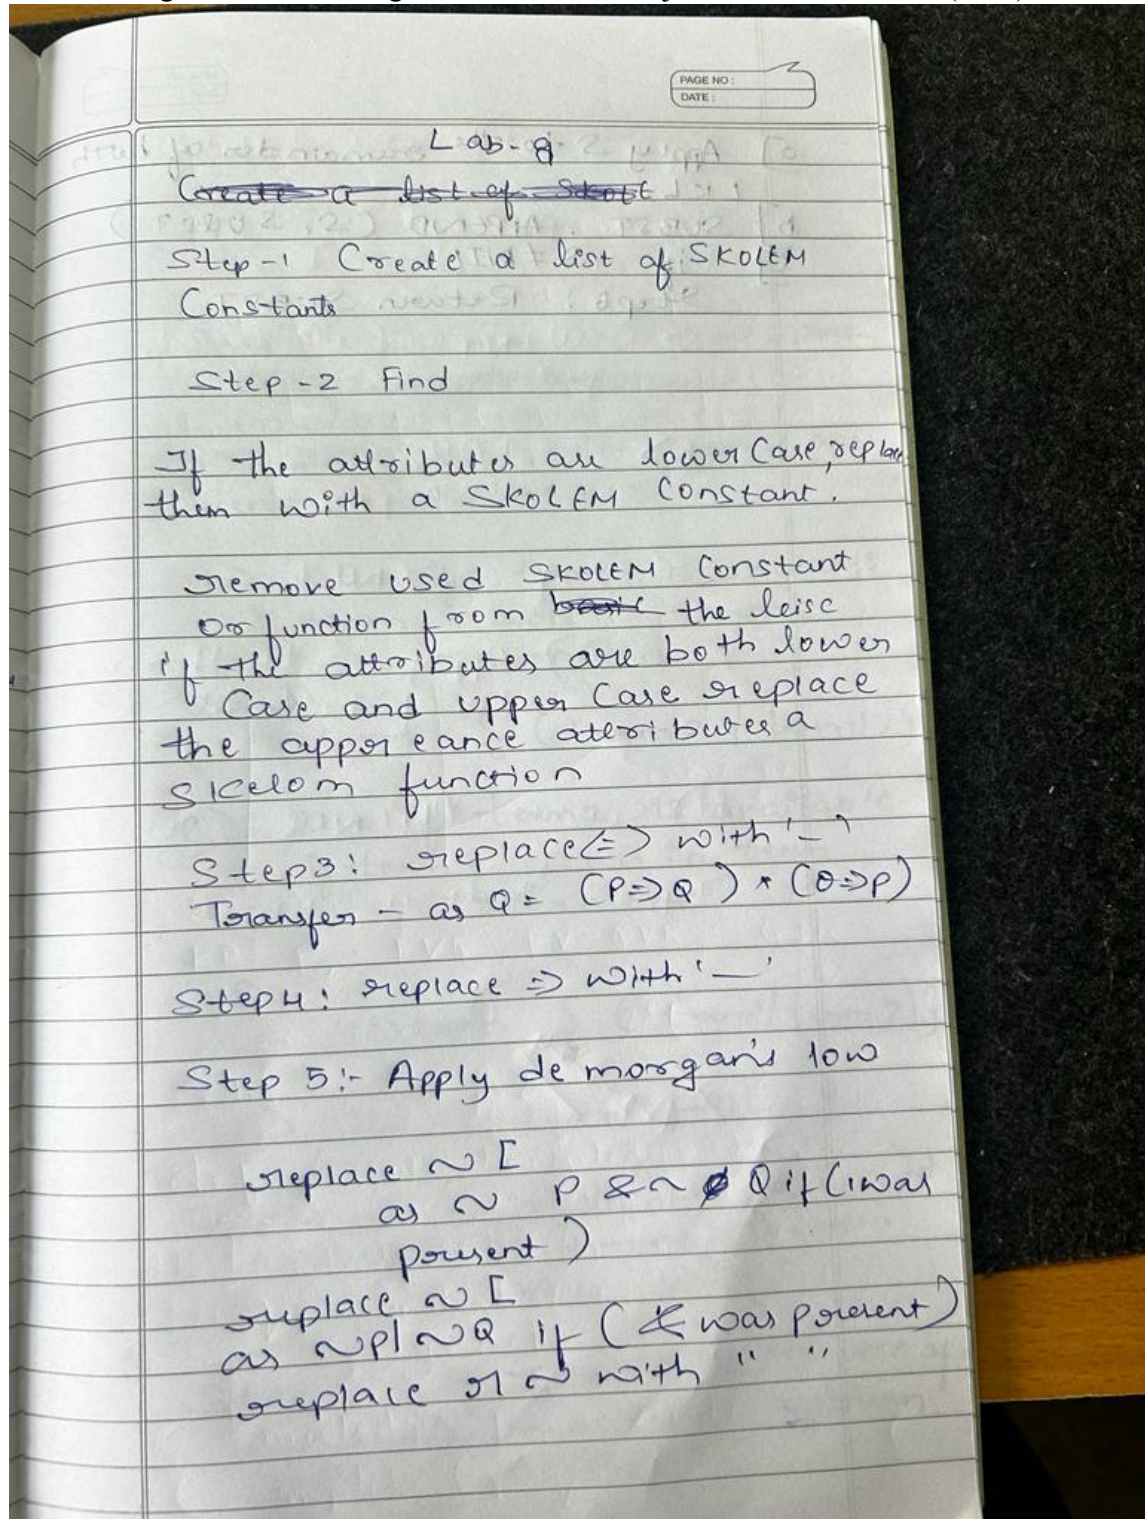 PAGE NO :
DATE :
Lab-8
Create a list of
Step-1 Create a list of SKOLEM
Constants
Step-2 Find
If the attributes are lower Case, replace
them with a SKOLEM Constant.
remove used SKOLEM Constant
Or function from the leisc
if the attributes are both lower
Case and upper Case replace
the appereance atteributes a
SKelom function
Step3: replace <=> with '-'
Transfer - as Q = (P=>Q) * (Q=>P)
Step4: replace => with '—'
Step 5:- Apply de morgan's low
replace ~[
as ~ P & ~ Q if (| was
present)
replace ~[
as ~P|~Q if (& was present)
replace ~ with " "